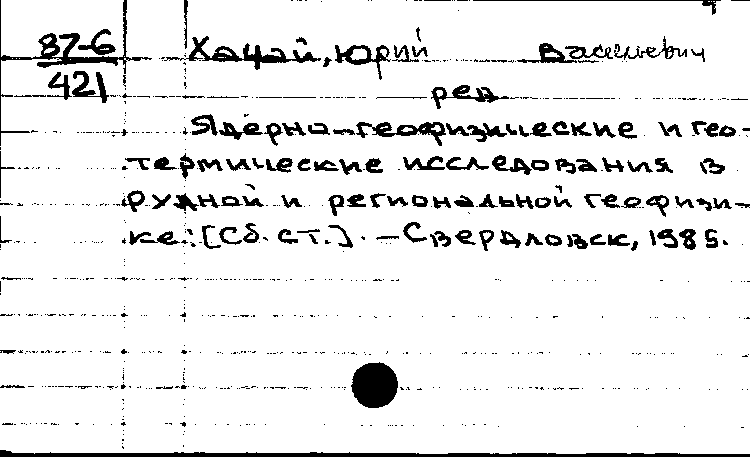 87-6 Хачай, Юрий Васильевич
421 ред.
Ядерно-геофизические и гео-
термические исследования в
рудной и региональной геофизи-
ке: [Сб. ст.]. - Свердловск, 1985.